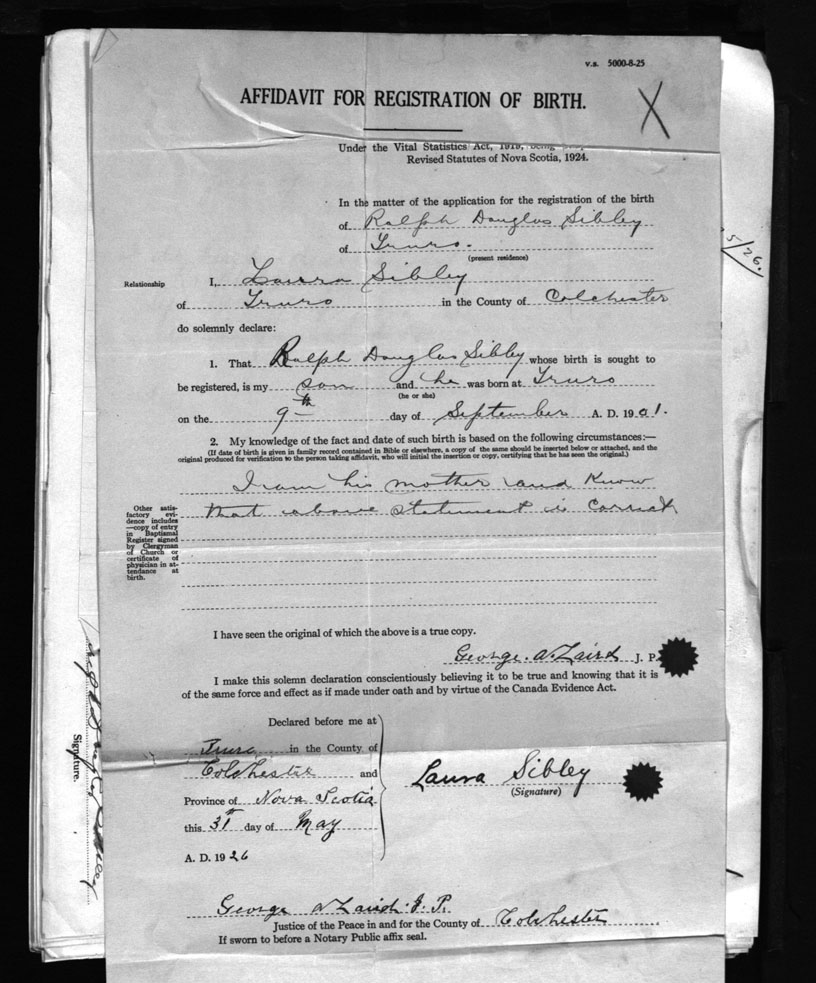 v.s. 5000-8-25
AFFIDAVIT FOR REGISTRATION OF BIRTH.
X
Under the Vital Statistics Act, 1919, being
Revised Statutes of Nova Scotia, 1924.
In the matter of the application for the registration of the birth
of Ralph Douglas Sibley
of Truro.
(present residence)
5/26.
Relationship
I, Laura Sibley
of Truro in the County of Colchester
do solemnly declare:
1. That Ralph Douglas Sibley whose birth is sought to
be registered, is my son and he was born at Truro
(he or she)
on the 9th day of September A. D. 1901.
2. My knowledge of the fact and date of such birth is based on the following circumstances:—
(If date of birth is given in family record contained in Bible or elsewhere, a copy of the same should be inserted below or attached, and the
original produced for verification to the person taking affidavit, who will initial the insertion or copy, certifying that he has seen the original.)
I am his mother and Know
that above statement is correct
Other satis-
factory evi-
dence includes
—copy of entry
in Baptismal
Register signed
by Clergyman
of Church or
certificate of
physician in at-
tendance at
birth.
I have seen the original of which the above is a true copy.
George A. Laird J. P.
I make this solemn declaration conscientiously believing it to be true and knowing that it is
of the same force and effect as if made under oath and by virtue of the Canada Evidence Act.
Declared before me at
Truro in the County of
Colchester and
Province of Nova Scotia
this 31st day of May
A. D. 1926
Laura Sibley
(Signature)
George A Laird J. P.
Justice of the Peace in and for the County of Colchester
If sworn to before a Notary Public affix seal.
Signature.